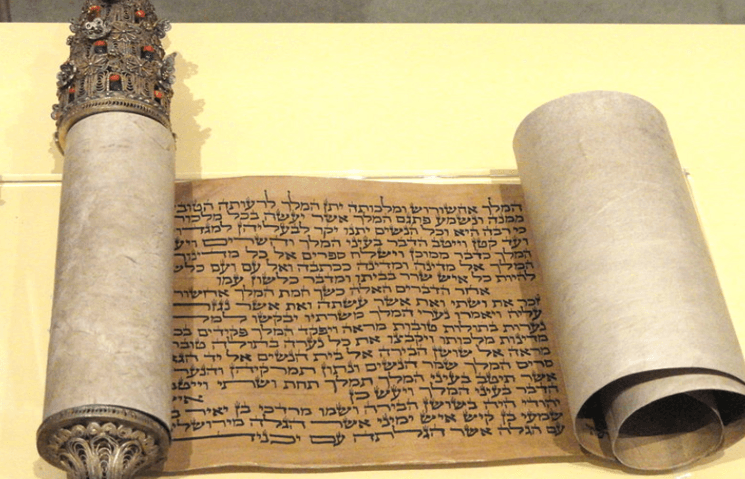 המלך אחשורוש ומלכותה יתן המלך לרעותה הטוב
ממנה ונשמע פתגם המלך אשר יעשה בכל מלכות
כי רבה היא וכל הנשים יתנו יקר לבעליהן למגד
ועד קטן וייטב הדבר בעיני המלך והשרים ויע
המלך כדבר ממוכן וישלח ספרים אל כל מדינות
המלך אל מדינה ומדינה ככתבה ואל עם ועם כלש
להיות כל איש שרר בביתו ומדבר כלשון עמו
אחר הדברים האלה כשך חמת המלך אחשור
זכר את ושתי ואת אשר עשתה ואת אשר נגזר
עליה ויאמרו נערי המלך משרתיו יבקשו למל
נערות בתולות טובות מראה ויפקד המלך פקידים בכ
מדינות מלכותו ויקבצו את כל נערה בתולה טוב
מראה אל שושן הבירה אל בית הנשים אל יד הגא
סריס המלך שמר הנשים ונתון תמרקיהן והנער
אשר תיטב בעיני המלך תמלך תחת ושתי וייטב
הדבר בעיני המלך ויעש כן אי
יהודי היה בשושן הבירה ושמו מרדכי בן יאיר ב
שמעי בן קיש איש ימיני אשר הגלה מירושלי
עם הגלה אשר הגלתה עם יכניה